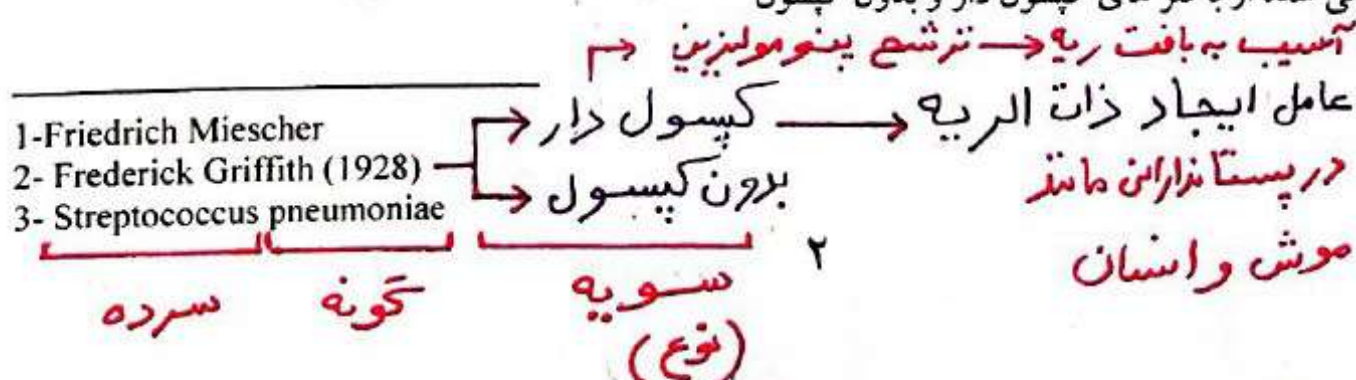 کپسول دار و بدون کپسول
آسیب به بافت ریه ← ترشح پنومولیزین
1-Friedrich Miescher
2- Frederick Griffith (1928)
3- Streptococcus pneumoniae
کپسول دار → عامل ایجاد ذات الریه
بدون کپسول
در پستانداران مانند
موش و انسان
سرده
گونه
سویه
(نوع)
۲